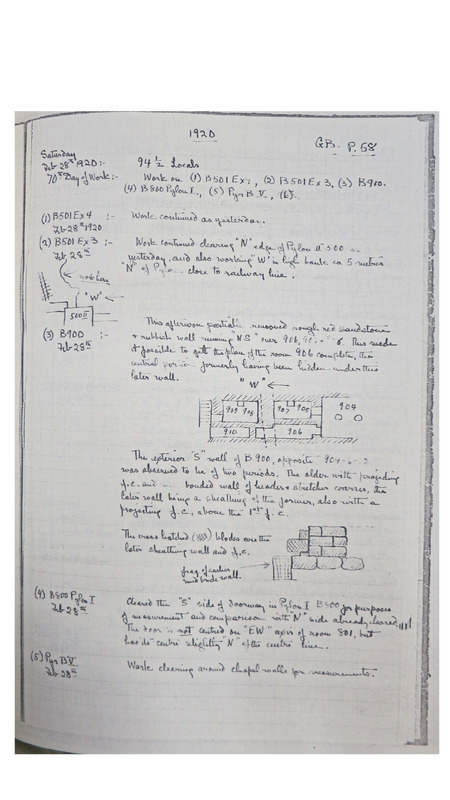 1920
GB. P. 58
Saturday
Feb 28th 1920:- 94½ Locals
70th Day of Work:- Work on (1) B501 Ex 4, (2) B501 Ex 3, (3) B900.
(4) B800 Pylon I., (5) Pyr B. V., (6).
(1) B501 Ex 4 :- Work continued as yesterday.
Feb 28th 1920
(2) B501 Ex 3 :- Work continued clearing "N" edge of Pylon II 500 as
Feb 28th yesterday, and also working "W" in high bank ca 5 metres
"N" of Pylon close to railway line.
work here
"W"
500 II
(3) B900 :-
Feb 28th
This afternoon partially removed rough red sandstone
& rubbish wall running "NS" over 906, This made
it possible to get the plan of the room 906 complete, the
central portion formerly having been hidden under this
later wall.
"W"
909 908 907 905 904
910 906
The exterior "S" wall of B 900, opposite 904
was observed to be of two periods. The older with projecting
f.c. and bonded wall of header & stretcher courses, the
later wall being a sheathing of the former, also with a
projecting f.c., above the 1st f.c.
The cross hatched blocks are the
later sheathing wall and f.c.
frag of earlier
mud brick wall.
(4) B800 Pylon I Cleared the "S" side of doorway in Pylon I B800 for purposes
Feb 28th of measurement and comparison with "N" side already cleared
The door is not centred on "EW" axis of room 801, but
has its centre slightly "N" of the centre line.
(5) Pyr B V Work clearing around chapel walls for measurements.
Feb 28th